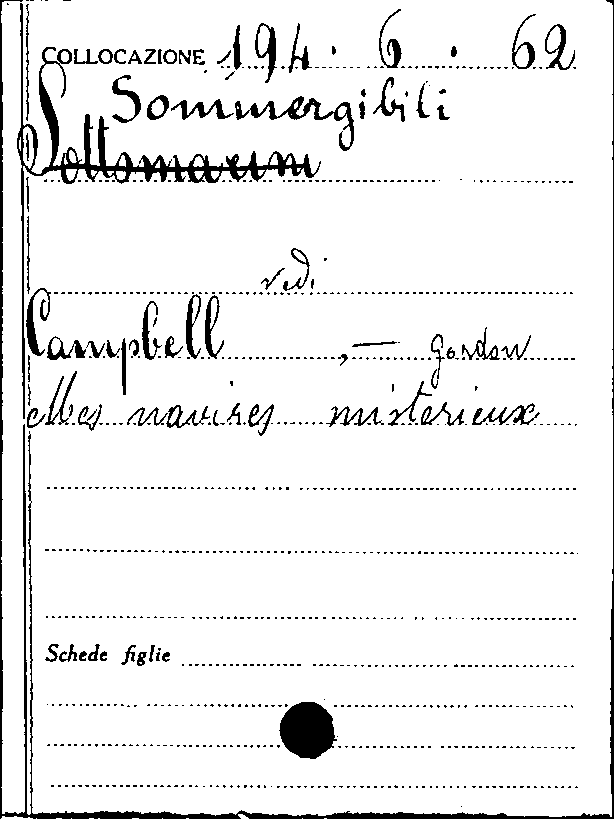 COLLOCAZIONE 194 . 6 . 62
Sommergibili
Sottomarini
vedi
Campbell ,— gordon
Mes navires misterieux
Schede figlie